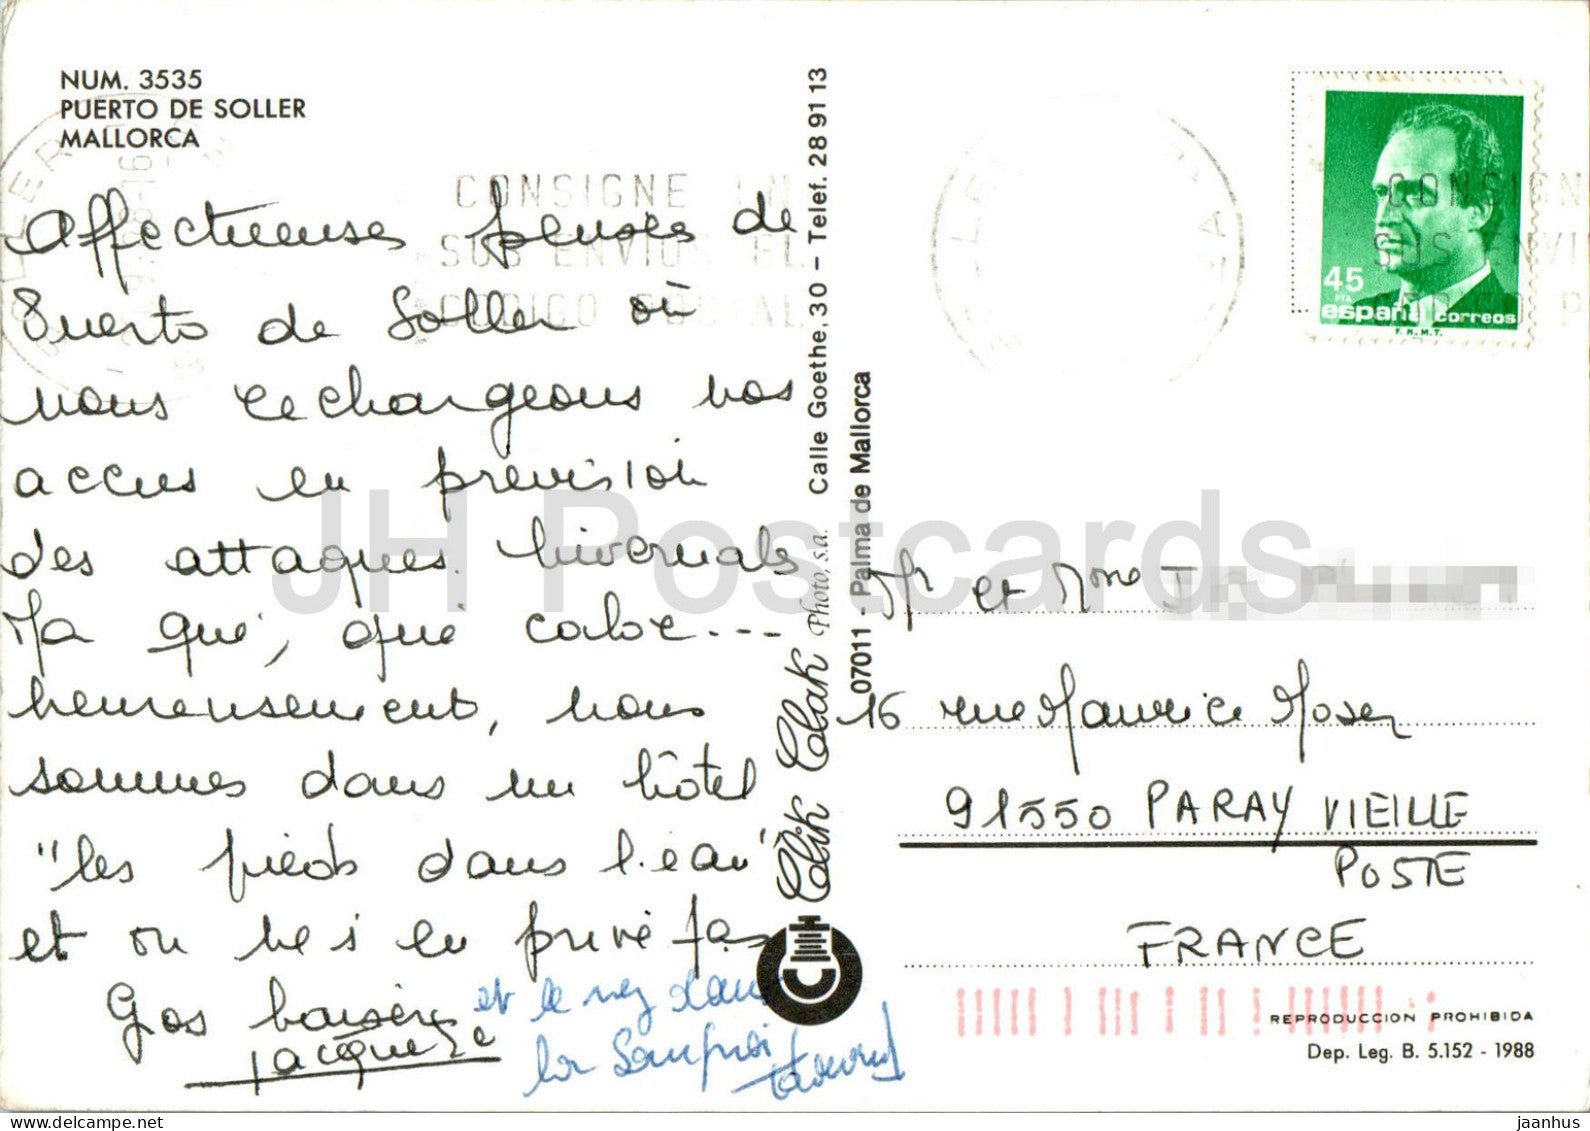 NUM. 3535
PUERTO DE SOLLER
MALLORCA
CONSIGNE EN
SUS ENVIOS EL
CODIGO POSTAL
Affectueuses pensées de
Puerto de Soller où
nous rechargeons nos
accus en prevision
des attaques hivernales
Ma qué, qué calor ---
heureusement, nous
sommes dans un hôtel
"les pieds dans l'eau"
et on ne s'en prive pas
Gos baisers
Jacqueline
et le nez dans
la
Clik Clak Photo, s.a. Calle Goethe, 30 - Telef. 28 91 13
07011 - Palma de Mallorca
45
PTA
españa correos
F.N.M.T.
CONSIGN
SUS ENVI
CODIGO P
Mr et Mme J
16 rue Maurice Moser
91550 PARAY VIEILLE
POSTE
FRANCE
REPRODUCCION PROHIBIDA
Dep. Leg. B. 5.152 - 1988
JH Postcards
jaanhus @ delcampe.net